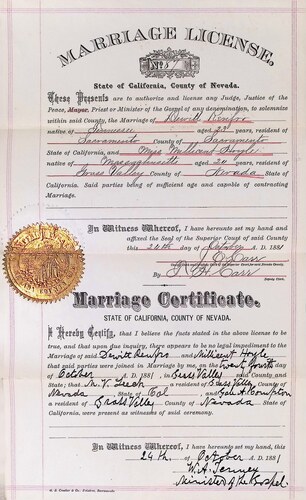 MARRIAGE LICENSE,
No 57
State of California, County of Nevada.
These Presents are to authorize and license any Judge, Justice of the
Peace, Mayor, Priest or Minister of the Gospel of any denomination, to solemnize
within said County, the Marriage of Dewitt Renfro
native of Tennessee aged 23 years, resident of
Sacramento County of Sacramento
State of California, and Miss Millicent Hoyle
native of Massachusetts aged 20 years, resident of
Valley County of Nevada State of
California. Said parties being of sufficient age and capable of contracting
Marriage.
In Witness Whereof, I have hereunto set my hand and
affixed the Seal of the Superior Court of said County
this 24th day of October A. D. 1881
J. E. Carr
By Carr
Deputy Clerk
Marriage Certificate.
STATE OF CALIFORNIA, COUNTY OF NEVADA.
I Hereby Certify, that I believe the facts stated in the above license to
be true, and that upon due inquiry, there appears to be no legal impediment to the
Marriage of said Dewitt Renfro and Millicent Hoyle
that said parties were joined in Marriage by me, on the twenty fourth
of October A. D. 1881 in Grass Valley said County and
State; that M. V. Leech a resident of Grass Valley
Nevada State of Cal and A. Compton
of Grass Valley County of Nevada State of
California, were present as witnesses of said ceremony.
In Witness Whereof, I have hereunto set my hand this
24th of October A. D. 1881
W. A. Tenney
Minister of the Gospel